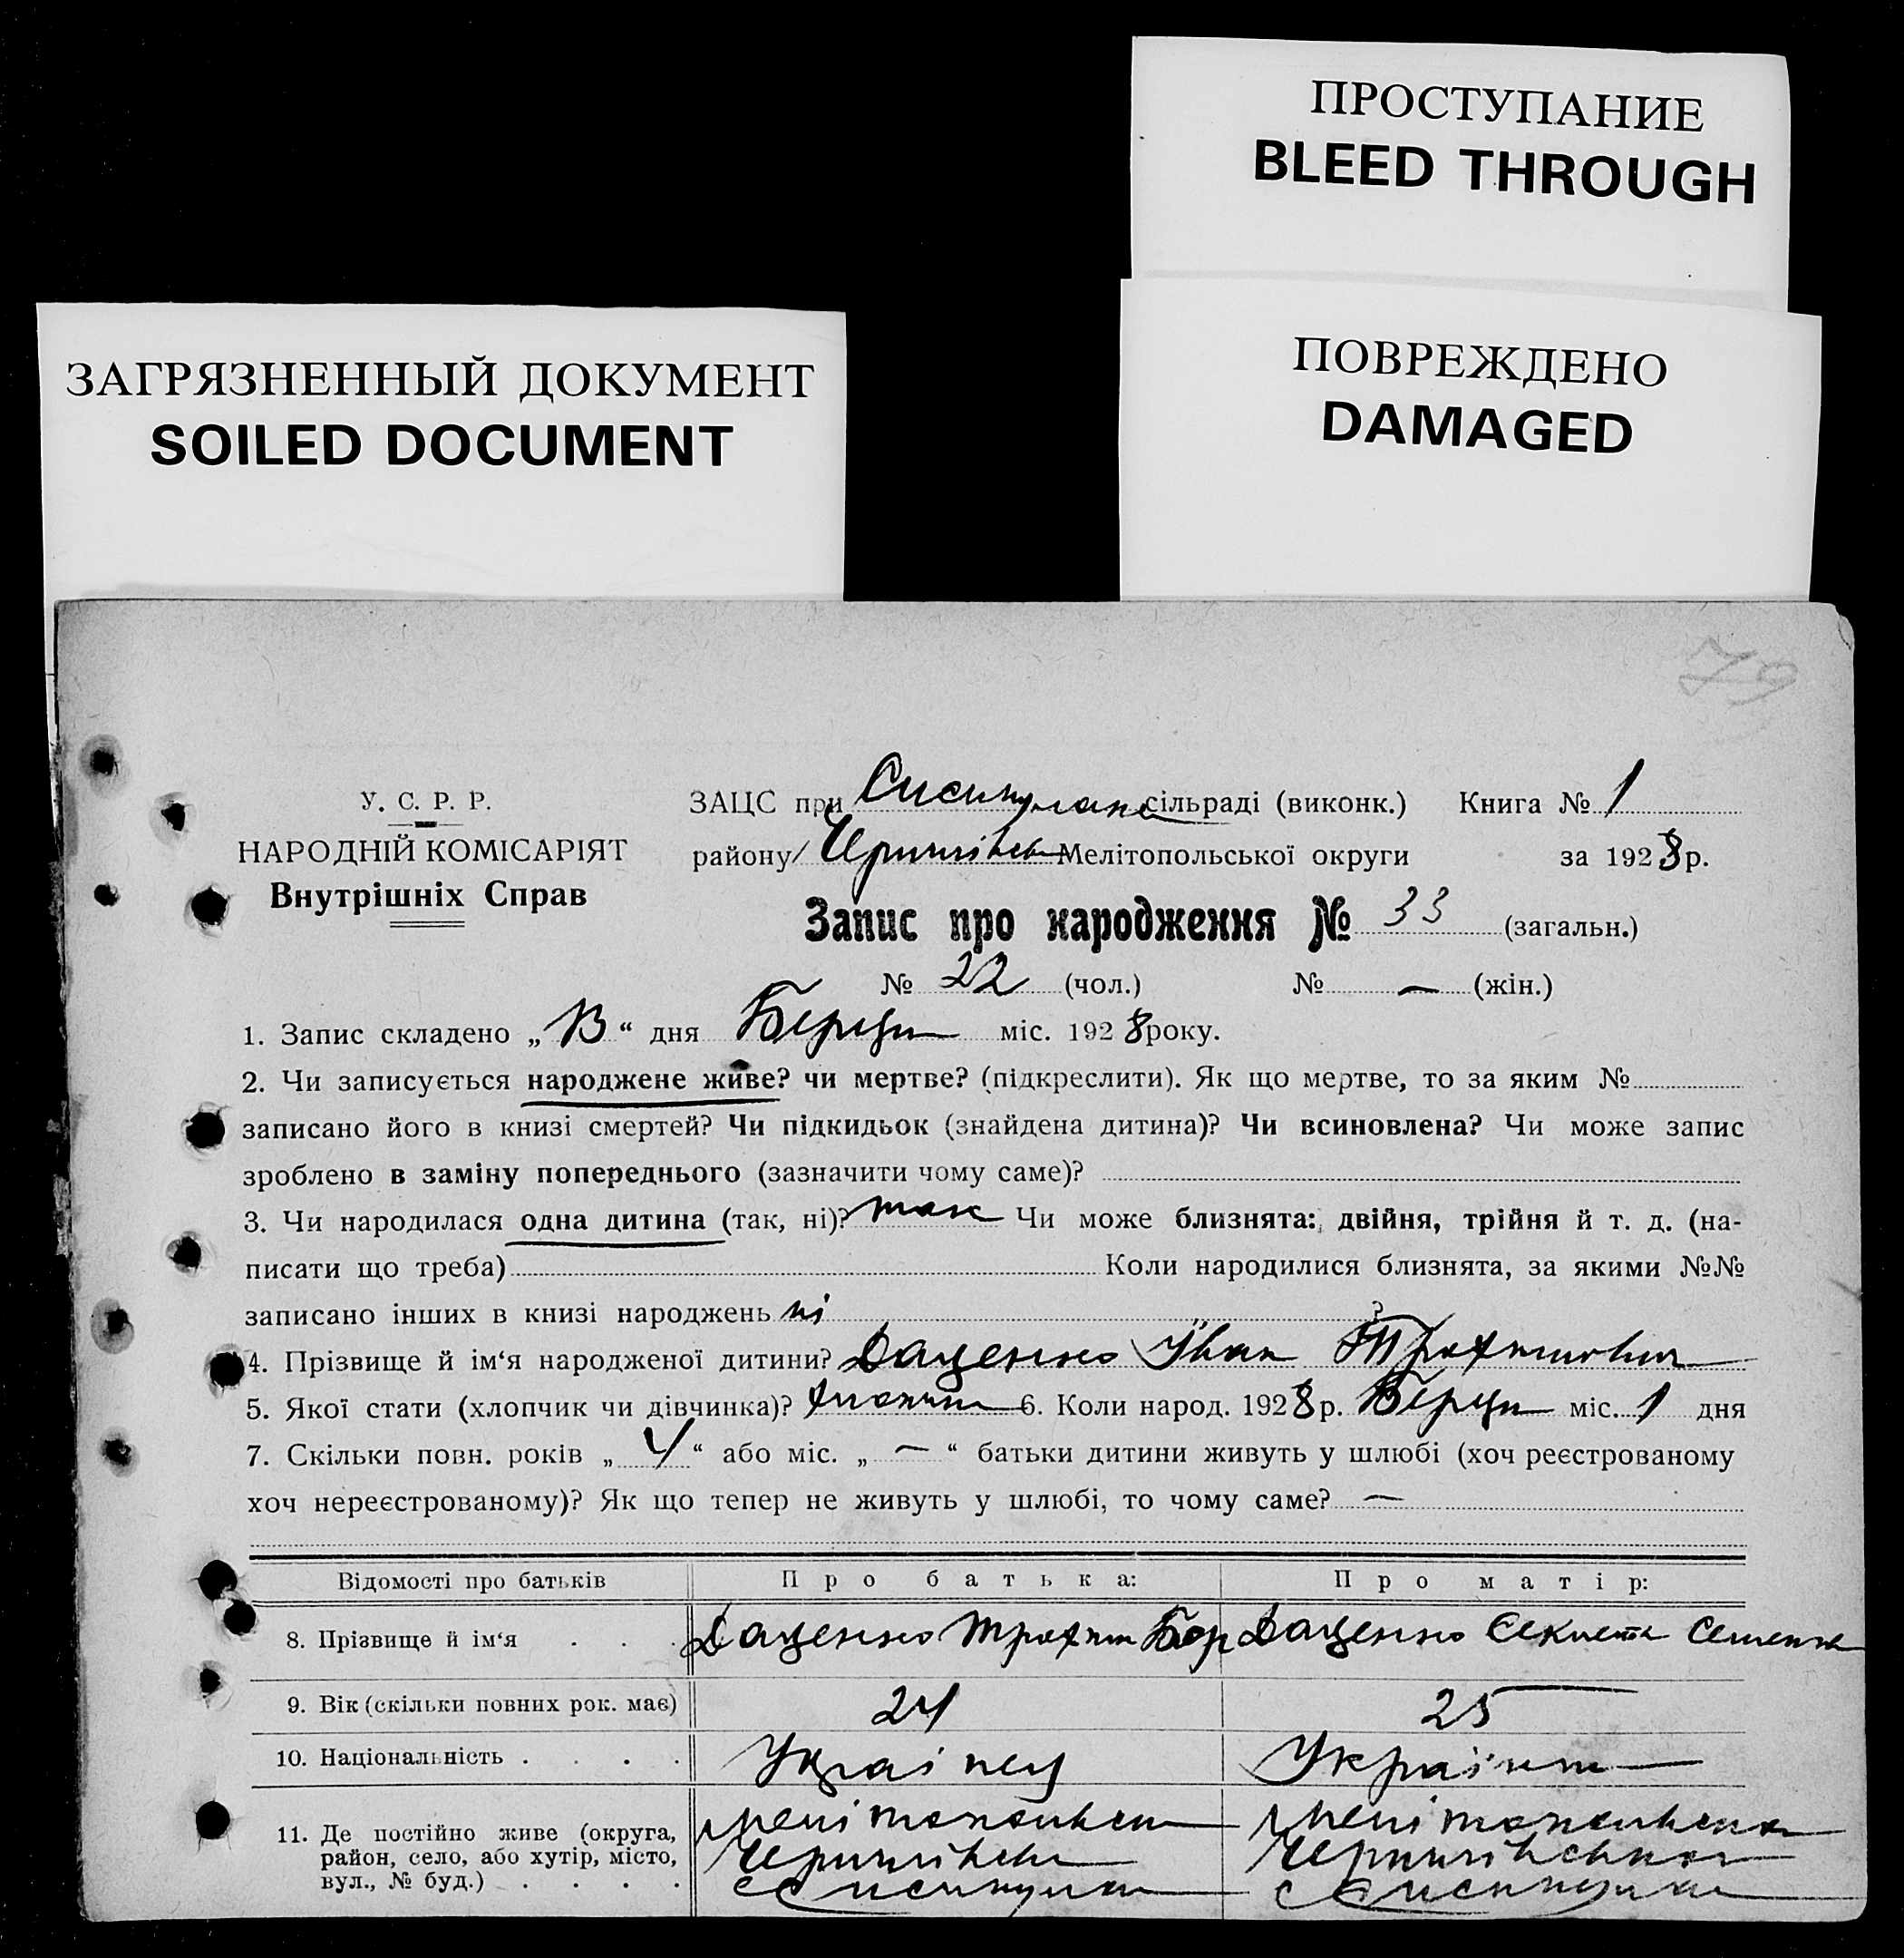 ПРОСТУПАНИЕ
BLEED THROUGH
ЗАГРЯЗНЕННЫЙ ДОКУМЕНТ
SOILED DOCUMENT
ПОВРЕЖДЕНО
DAMAGED
79
У. С. Р. Р.
НАРОДНІЙ КОМІСАРІЯТ
Внутрішніх Справ
ЗАЦС при сільраді (виконк.) Книга № 1
району Мелітопольської округи за 1928 р.
Запис про народження № 33 (загальн.)
№ 22 (чол.) № — (жін.)
1. Запис складено „ “ дня міс. 1928 року.
2. Чи записується народжене живе? чи мертве? (підкреслити). Як що мертве, то за яким №
записано його в книзі смертей? Чи підкидьок (знайдена дитина)? Чи всиновлена? Чи може запис
зроблено в заміну попереднього (зазначити чому саме)?
3. Чи народилася одна дитина (так, ні)? так Чи може близнята: двійня, трійня й т. д. (на-
писати що треба) Коли народилися близнята, за якими №№
записано інших в книзі народжень ні ?
4. Прізвище й ім‘я народженої дитини? Даценко Іван Трохимович
5. Якої стати (хлопчик чи дівчинка)? хлопчик 6. Коли народ. 1928 р. міс. 1 дня
7. Скільки повн. років „ 4 “ або міс. „ — “ батьки дитини живуть у шлюбі (хоч реєстрованому
хоч нереєстрованому)? Як що тепер не живуть у шлюбі, то чому саме? —
Відомості про батьків Про батька: Про матір:
8. Прізвище й ім‘я . . . Даценко Трохим Даценко
9. Вік (скільки повних рок. має) 24 25
10. Національність . . . . Українец Українка
11. Де постійно живе (округа,
район, село, або хутір, місто,
вул., № буд.) . . . .